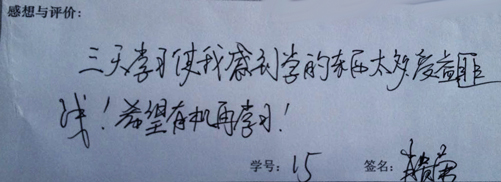 感想与评价:
三天学习使我感到学的东西太多受益匪
浅!希望有机再学习!
学号: 15 签名: